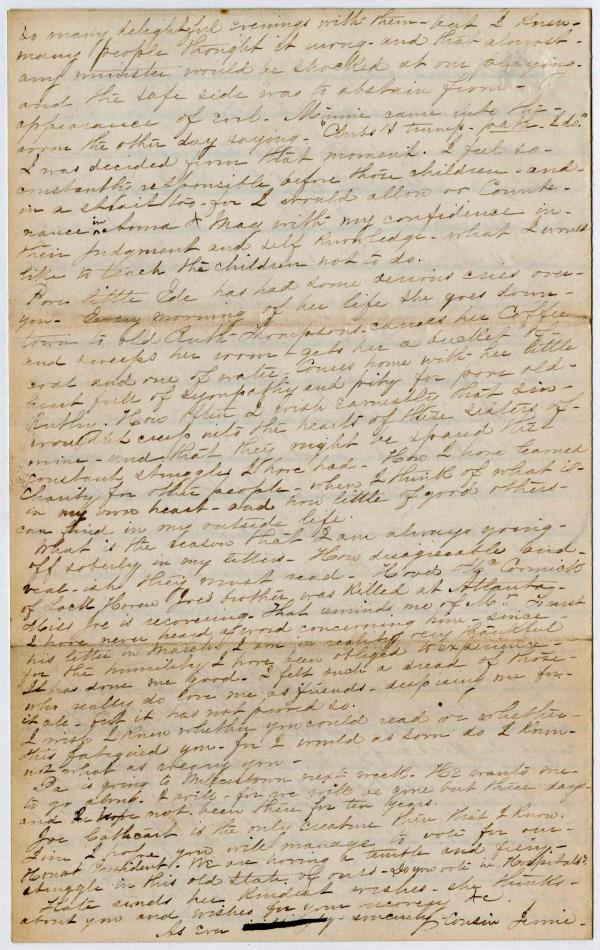 so many delightful evenings with them - but I knew -
many people thought it wrong - and that almost -
any minister would be shocked at our playing -
and the safe side was to abstain from -
appearance of evil. Minnie came into the -
room the other day saying - "Clubs is trump - pass - I do."
I was decided from that moment. I feel so -
constantly responsible before those children - and -
in a strait too - for I would allow or Counte-
nance in Anna & May with my confidence in -
their judgment and self knowledge - what I would
like to teach the children not to do.
Pore little Ede has had some serious cries over -
you - Every morning of her life she goes down -
town to old Ruth Thompsons - causes her Coffee
and sweeps her room - gets her a bucket of -
coal and one of water. Comes home with her little
heart full of sympathy and pity for pore old -
Ruthy. How often I wish earnestly that sin -
wouldn't creep into the hearts of these sisters of -
mine - and that they might be spared the -
constant struggle I have had - How I have learned
Charity for other people - when I think of what is -
in my own heart - and how little of good others -
can find in my outside life.
What is the reason that I am always going -
off soberly in my letters - How disagreeable and -
real-ish they must read -
of Lock Haven Joe's brother, was killed at Atlanta -
Miss Joe is recovering. That reminds me of Mr.
I have never heard a word concerning him - since -
his letter in March. I am in reality very thankful
for the humility I have been obliged to experience -
It has done me good. I felt such a dread of those -
who really do love me as friends - despising me for -
it all - but it has not proved so.
I wish I knew whether you could read or whether -
this fatigued you - for I would as soon do I know -
not what as weary you -
Pa is going to next week. He wants me -
to go along. I will - for we will be gone but three days -
and I have not been there for ten years.
Joe Cathcart is the only creature there that I know.
Lim I hope you will manage to vote for our -
Honest President. We are having a terrible and fiery -
struggle in this old State of ours - Do you vote in Hospitals?
Kate sends her kindest wishes - she thinks -
about you and wishes for your recovery &c.
As Ever sincerely - Cousin Jennie -